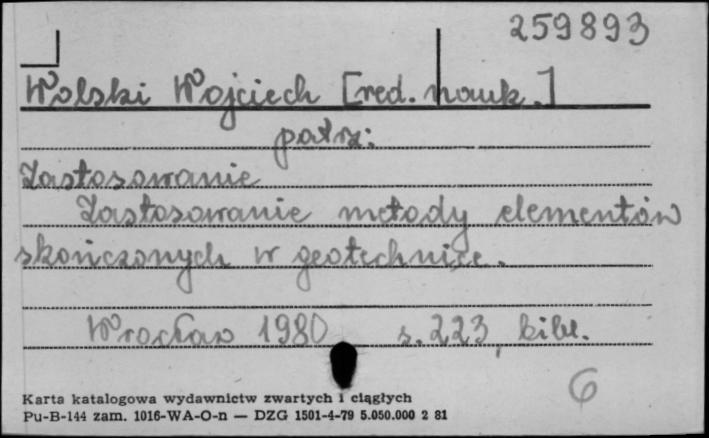 259893
Wolski Wojciech [red. nauk.]
patrz:
Zastosowanie
Zastosowanie metody elementów
skończonych w geotechnice.
Wrocław 1980 s. 223, bibl.
6
Karta katalogowa wydawnictw zwartych i ciągłych
Pu-B-144 zam. 1016-WA-O-n — DZG 1501-4-79 5.050.000 2 81